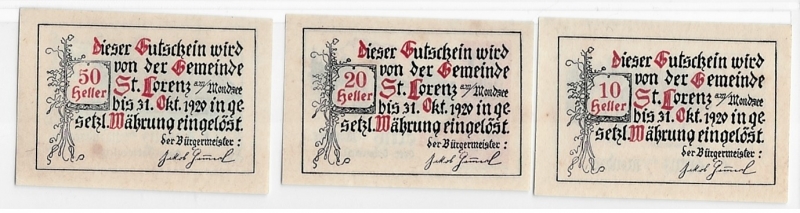 Dieser Gutschein wird
von der Gemeinde
50 Heller
St. Lorenz am/Mondsee
bis 31. Okt. 1920 in ge-
setzl. Währung eingelöst.
der Bürgermeister:
Dieser Gutschein wird
von der Gemeinde
20 Heller
St. Lorenz am/Mondsee
bis 31. Okt. 1920 in ge-
setzl. Währung eingelöst.
der Bürgermeister:
Dieser Gutschein wird
von der Gemeinde
10 Heller
St. Lorenz am/Mondsee
bis 31. Okt. 1920 in ge-
setzl. Währung eingelöst.
der Bürgermeister: